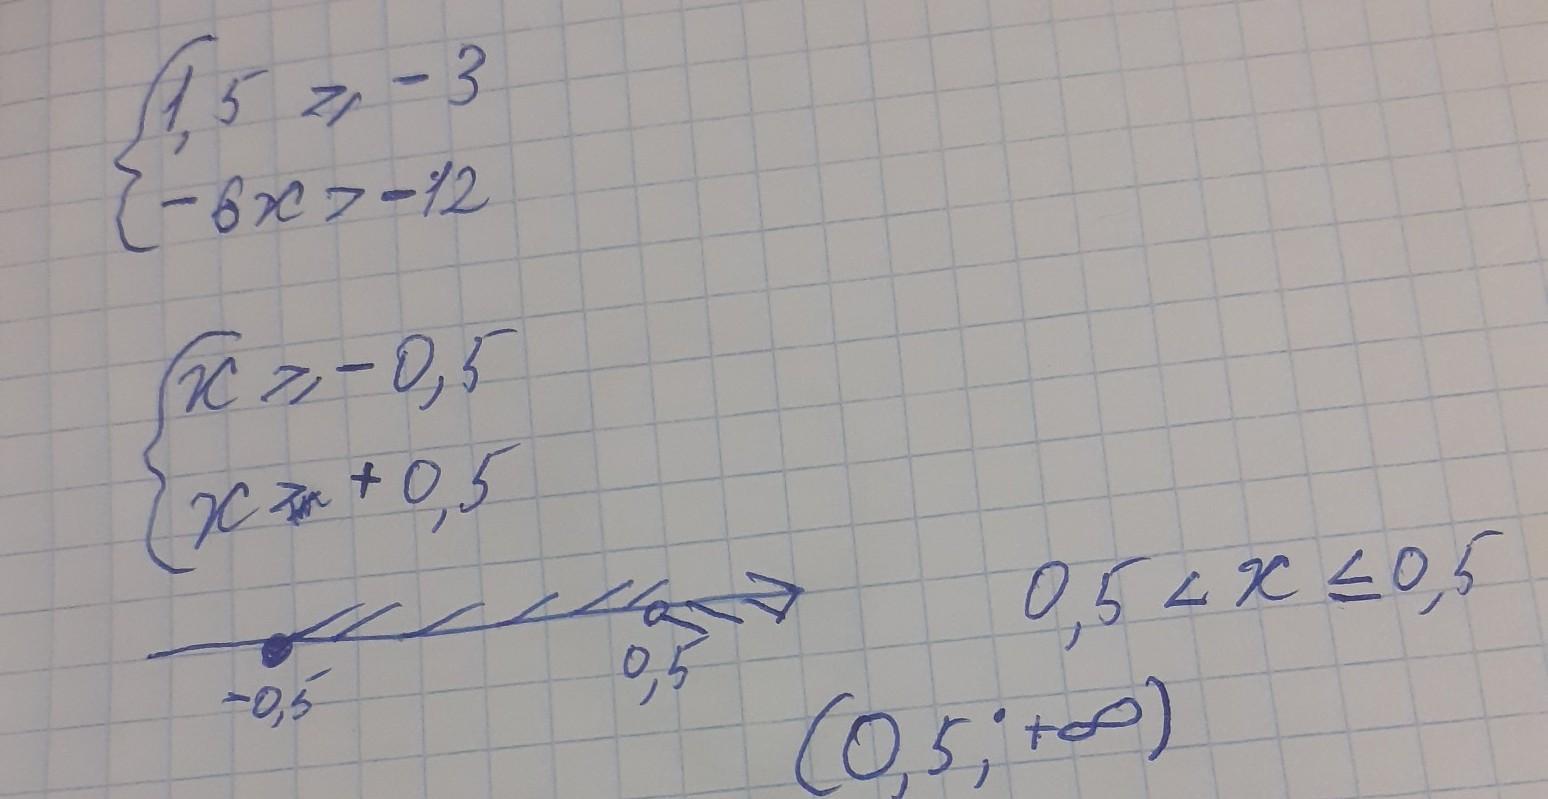 1,5 ⩾ -3
-6x > -12
x ⩾ -0,5
x > +0,5
-0,5 0,5
0,5 < x ≤ 0,5
(0,5; +∞)